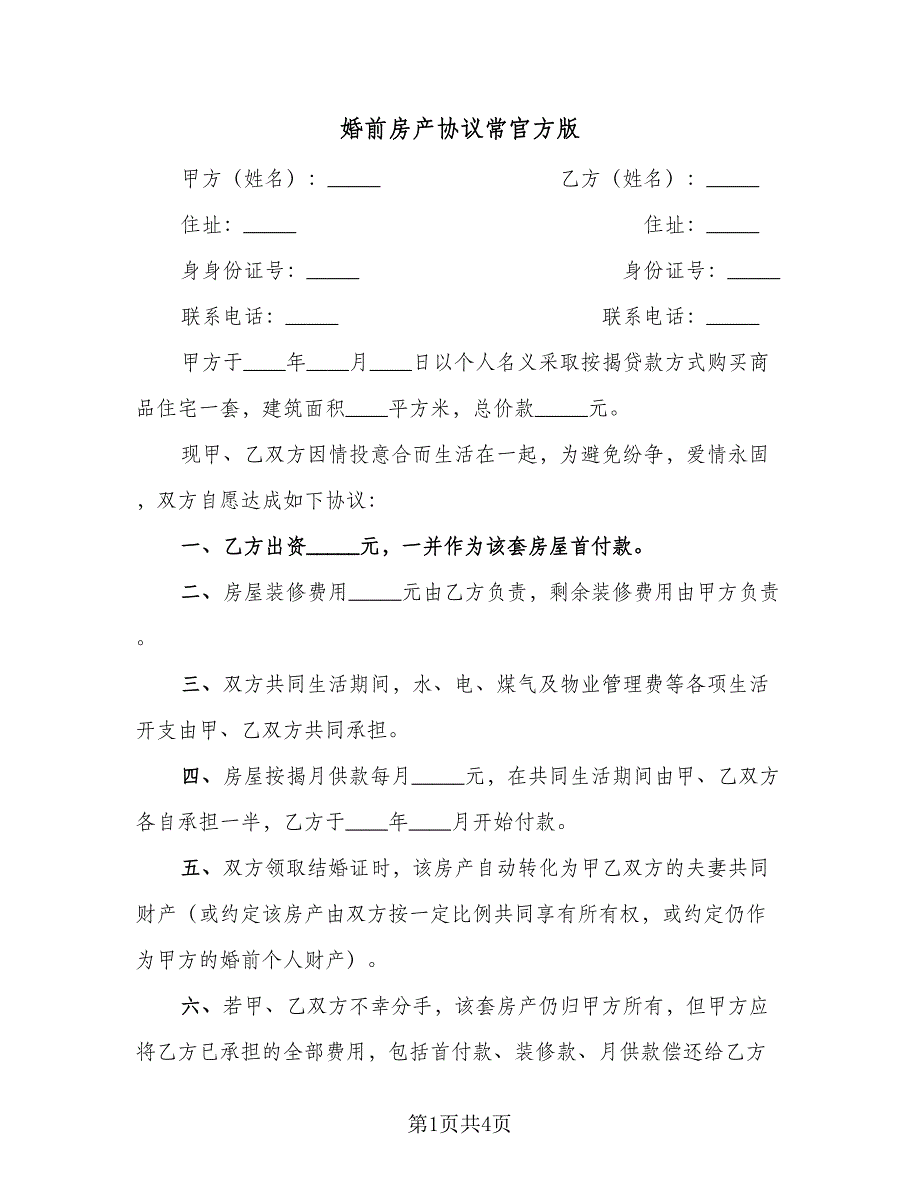 婚前房产协议常官方版
甲方（姓名）：_____ 乙方（姓名）：_____
住址：_____ 住址：_____
身身份证号：_____ 身份证号：_____
联系电话：_____ 联系电话：_____
甲方于____年____月____日以个人名义采取按揭贷款方式购买商
品住宅一套，建筑面积____平方米，总价款_____元。
现甲、乙双方因情投意合而生活在一起，为避免纷争，爱情永固
，双方自愿达成如下协议：
一、乙方出资_____元，一并作为该套房屋首付款。
二、房屋装修费用_____元由乙方负责，剩余装修费用由甲方负责
。
三、双方共同生活期间，水、电、煤气及物业管理费等各项生活
开支由甲、乙双方共同承担。
四、房屋按揭月供款每月_____元，在共同生活期间由甲、乙双方
各自承担一半，乙方于____年____月开始付款。
五、双方领取结婚证时，该房产自动转化为甲乙双方的夫妻共同
财产（或约定该房产由双方按一定比例共同享有所有权，或约定仍作
为甲方的婚前个人财产）。
六、若甲、乙双方不幸分手，该套房产仍归甲方所有，但甲方应
将乙方已承担的全部费用，包括首付款、装修款、月供款偿还给乙方
第1页共4页